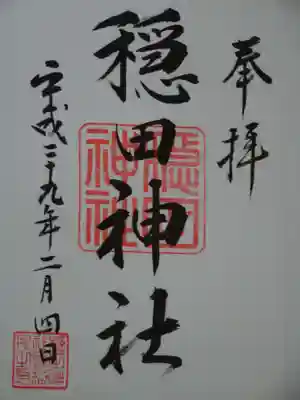 奉拝
穏田神社
平成二十九年二月四日
穏田
神社